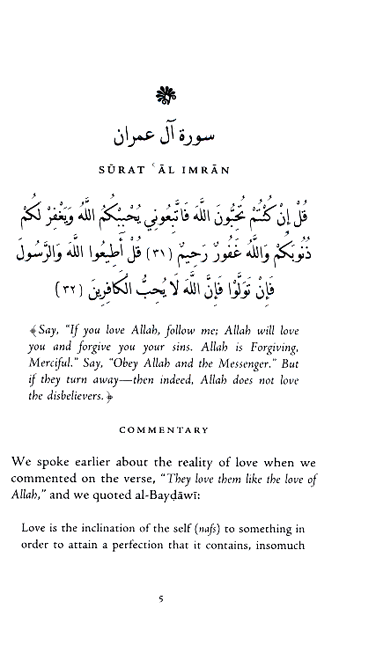 سورة آل عمران
SŪRAT ʿĀL IMRĀN
قُلْ إِنْ كُنْتُمْ تُحِبُّونَ اللَّهَ فَاتَّبِعُونِي يُحْبِبْكُمُ اللَّهُ وَيَغْفِرْ لَكُمْ
ذُنُوبَكُمْ وَاللَّهُ غَفُورٌ رَحِيمٌ (٣١) قُلْ أَطِيعُوا اللَّهَ وَالرَّسُولَ
فَإِنْ تَوَلَّوْا فَإِنَّ اللَّهَ لَا يُحِبُّ الْكَافِرِينَ (٣٢)
﴾Say, “If you love Allah, follow me; Allah will love
you and forgive you your sins. Allah is Forgiving,
Merciful.” Say, “Obey Allah and the Messenger.” But
if they turn away—then indeed, Allah does not love
the disbelievers.﴿
COMMENTARY
We spoke earlier about the reality of love when we
commented on the verse, “They love them like the love of
Allah,” and we quoted al-Bayḍāwī:
Love is the inclination of the self (nafs) to something in
order to attain a perfection that it contains, insomuch
5